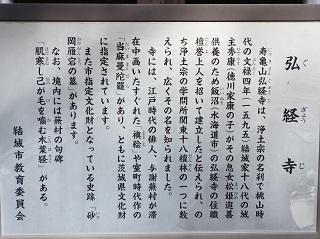 弘経寺
ぐぎょうじ
寿亀山弘経寺は、浄土宗の名刹で桃山時
代の文禄四年(一五九五)結城家十八代の城
主秀康(徳川家康の子)がその息女松姫追善
供養のため飯沼(水海道市)の弘経寺の住職
檀誉上人を招いて建立したと伝えられ、の
ち浄土宗の学問所関東十八檀林の一つに数
えられ、広くその名を知られました。
寺には、江戸時代の俳人 与謝蕪村が滞
在中画いたすぐれた「襖絵」や室町時代作の
「当麻曼陀羅」があり、ともに茨城県文化財
に指定されています。
また市指定文化財となっている史跡「砂
岡雁宕の墓」があります。
なお、境内には蕪村の句碑
「肌寒し己が毛を噛む木葉経」がある。
結城市教育委員会